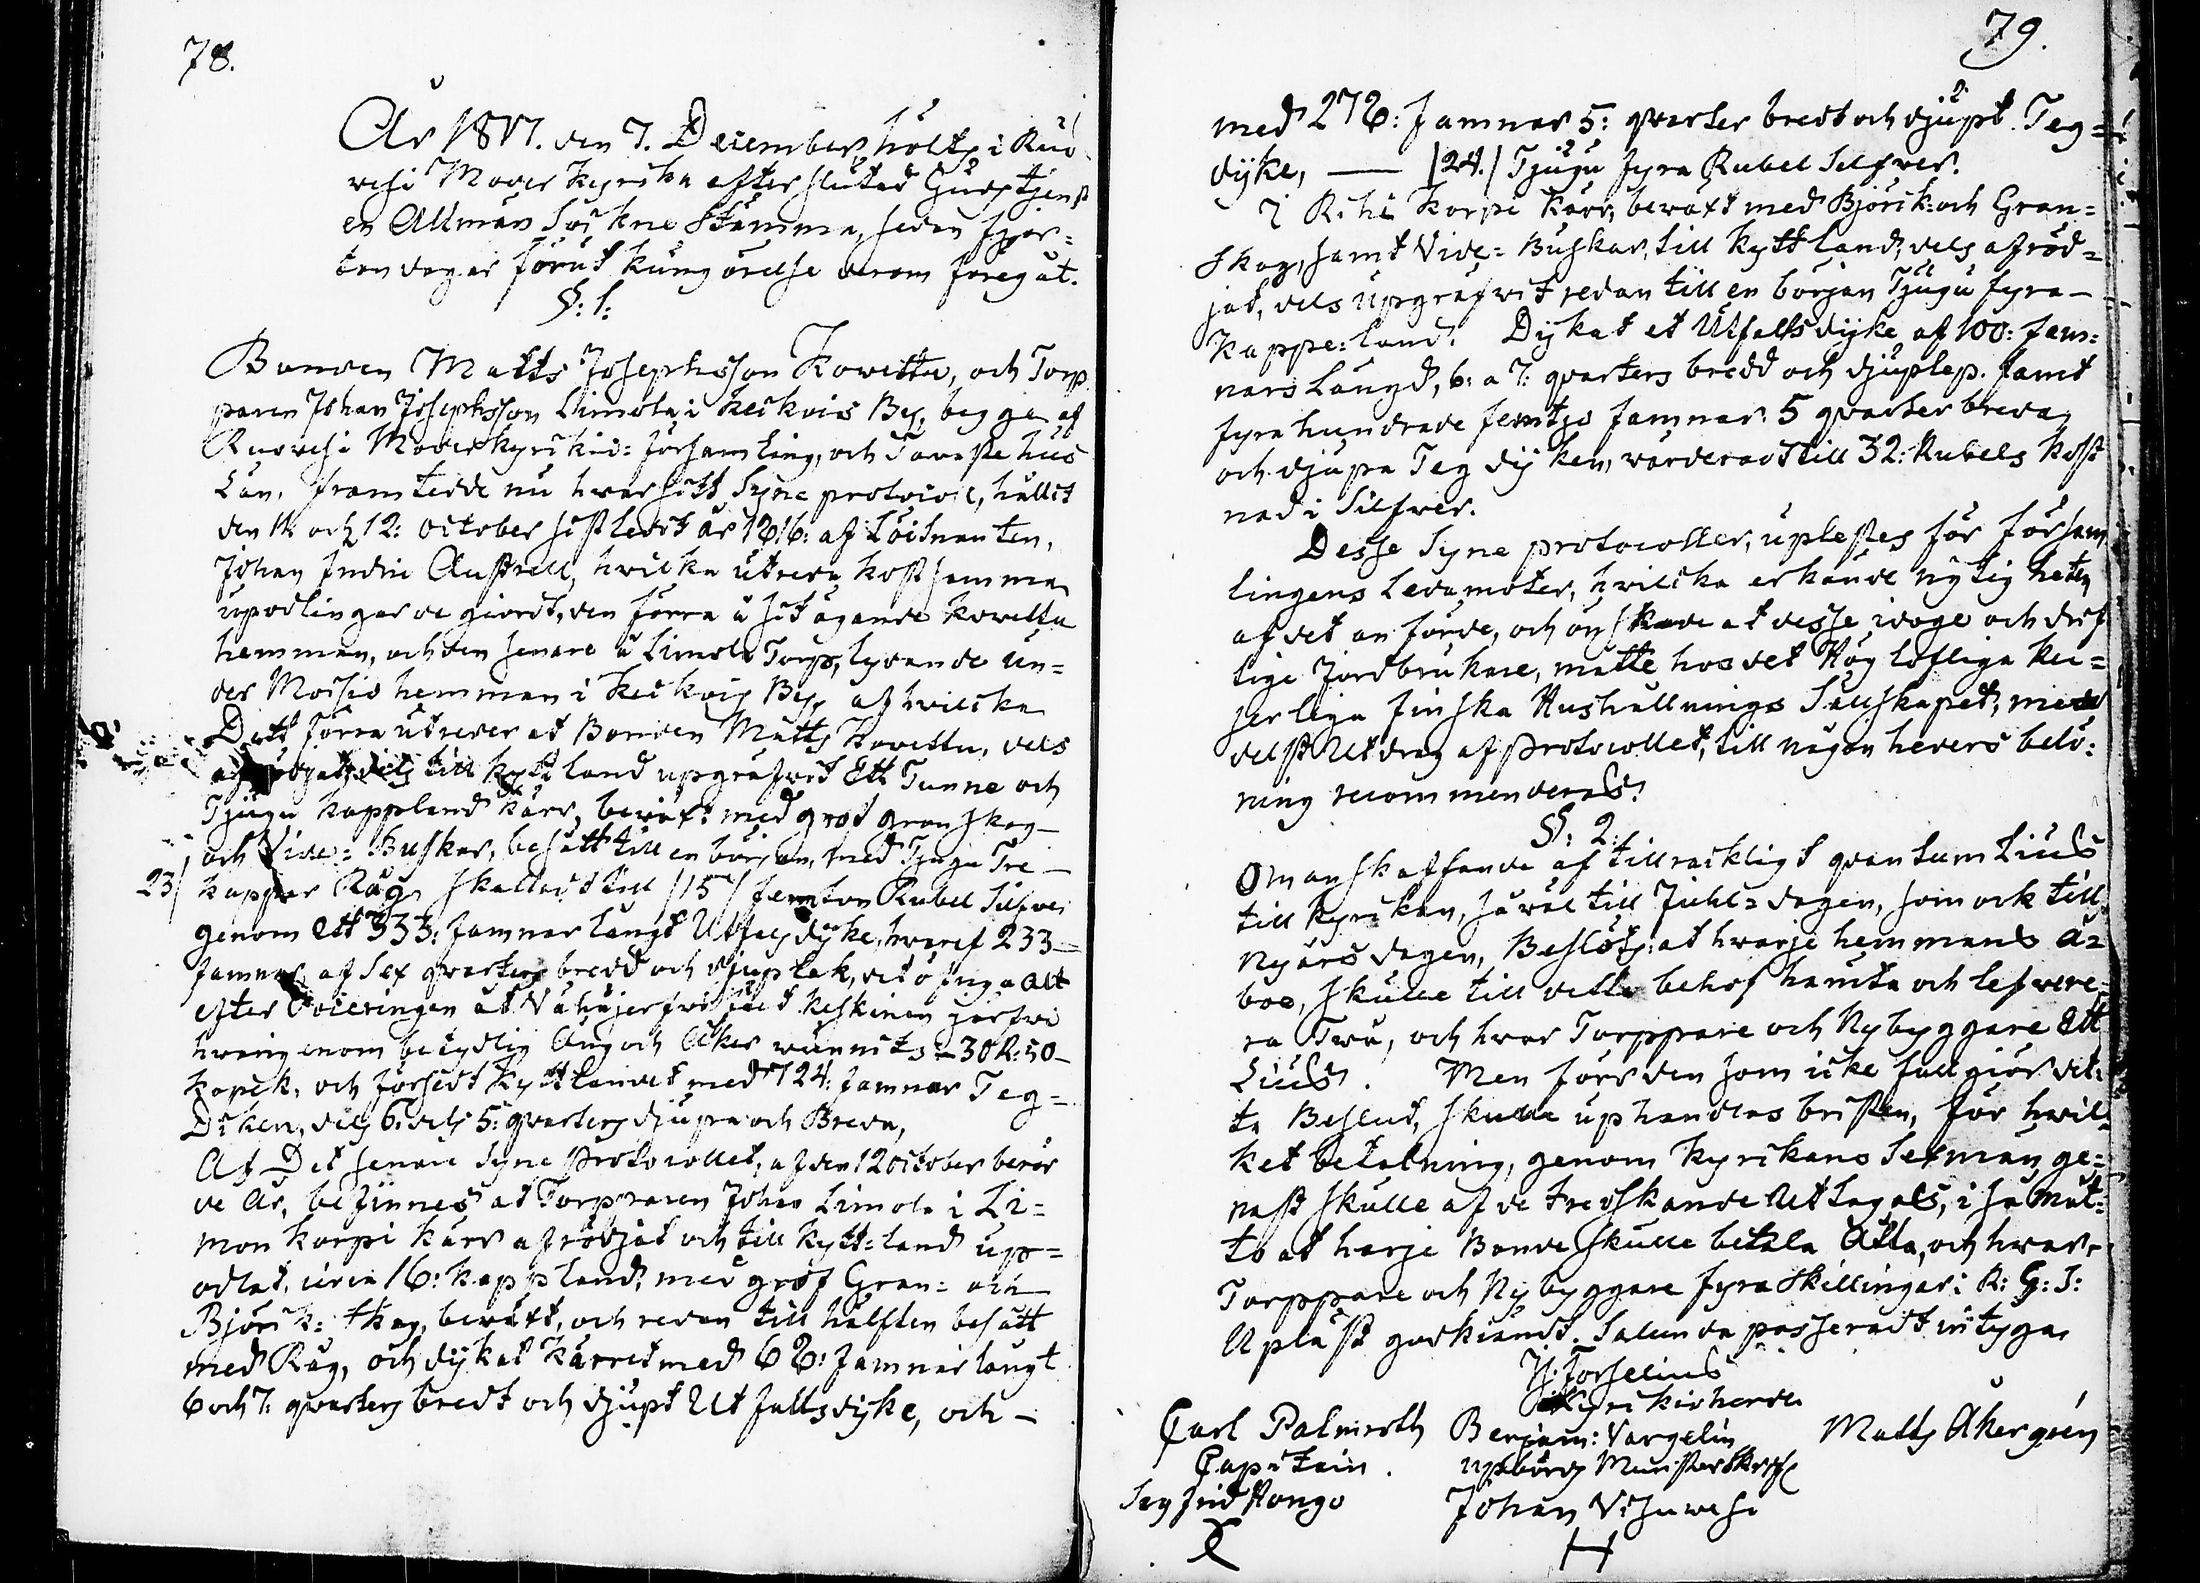 78.
År 1817. den 7. December, hölts i Ruo
vesi Moder kyrcka efter slutad Gudstjenst
en Allmän Sockne Stämma, sedan fjor=
ton dagar förut kungörelse derom föregåt.
§: 1:
Bonden Matts Josephsson Kowetta, och Torp
paren Johan Josephsson Limola i keckois By, bägge af
Ruovesi Moderkyrckio= församling, och Tavastehus
Län, framtedde nu hwar sitt Syne protocoll, hållit
den 11 och 12: October sistledit år 1816: af Löitnanten,
Johan Andri Austrell, hvilka utreda kostsamma
upodlingar de giordt, den förra å sit ägande kowetta
hemman, och den senare å Limola Torp, lydande un=
der Moisio hemman i keckois By, af hvilcka
Dett förra utreder at Bonden Matts Kovetta, dels
till kytt land upgräfvit Ett Tunne och
Tjugu kappland kärr, beväxt med grof granskog
och Vide= Buskar, besått till en början, med Tjugu Tre
23/ kappar Råg, skattadt till /15/ femton Rubel Silfver
genom ett 333: famnar långt Utfalsdyke, hvaraf 233
famnar af Sex qvarters bredd och djuplek, det öfriga alt
efter
hwarigenom betydlig Äng och Åker wunnits = 30 R: 50
kopek. och försedt kyttlandet med 724: famnar Teg=
Diken, dels 6: dels 5: qvarters djupa och Breda,
Af Det senare Syne Protocollet, af den 12 october berör
de År, befinnes at Torpparen Johan Limola i Li=
mon korpi kärr afrödjat och till kytt=land up=
odlat, circa 16: kappland, med grof Gran= och
Björck: skog, bewäxt, och redan till hälften besått
med Råg, och dykat kärret med 66: famnar långt
6 och 7: qvarters bredt och djupt Utfallsdyke, och
79.
med 276: famnar 5: qvarter bredt och djupt Teg=
dyke, — /24./ Tjugu fyra Rubel Silfver.
I Rihi korpi kärr, bewäxt med Björck= och Gran=
skog, samt Vide= Buskar, till kyttland, dels afröd=
jat, dels upgräfvit redan till en början Tjugu fyra
kappe=land. Dykat et Utfallsdyke af 100: fam=
nars Längd, 6: a 7: qvarters bredd och djuplep. samt
fyra hundrade femtjo famnar 5 qvarter breda
och djupa Teg dyken, värderadt till 32: Rubels kost
nad i Silfver.
Desse Syne protocoller, uplestes för försam
lingens Ledamöter, hvilcka erkände nytigheten
af det anförde, och önskade at desse idoge och drif
tige Jordbrukare, måtte hos det Höglofliga kei=
serliga finska Hushållnings Sällskapet, me
delst Utdrag af Protocollet, till någon heders belö=
ning recommenderas.
§: 2
Om anskaffande af tillräckligt quantum Lius
till kyrckan, så wäl till Juhl= dagen, som ock till
Nyårs dagen, Beslöts: at hwarje hemmans å=
boe, skulle till detta behof hämta och lefvere=
ra Twå, och hwar Torppare och Nybyggare Ett
Lius. Men förr den som icke fullgiör det=
ta Beslut, skulle uphandlas bristen, för hwil=
ket betalning, genom kyrckans Sexmän ge=
nast skulle af de tredskande uttagas, i så måt=
to at harje Bonde skulle betala Åtta, och hwar=
Torppare och Nybyggare fyra skillingar: R: G: S:
Uplåst godkiändt. Sålunda passeradt intyga
H: Forselius
kyrckioherde
Carl Palmroth Benjam: Vargelin Matts Åkergren
Capitain. upbörds
Sigfrid Hongo Johan Visuwesi